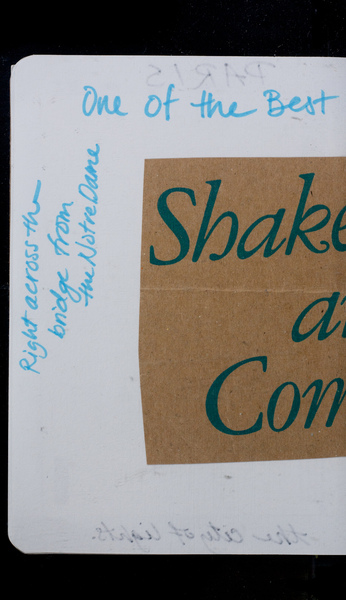 PARIS
One of the Best
Right across the
bridge from
the Notre Dame
Shake
a
Com
the city of lights.